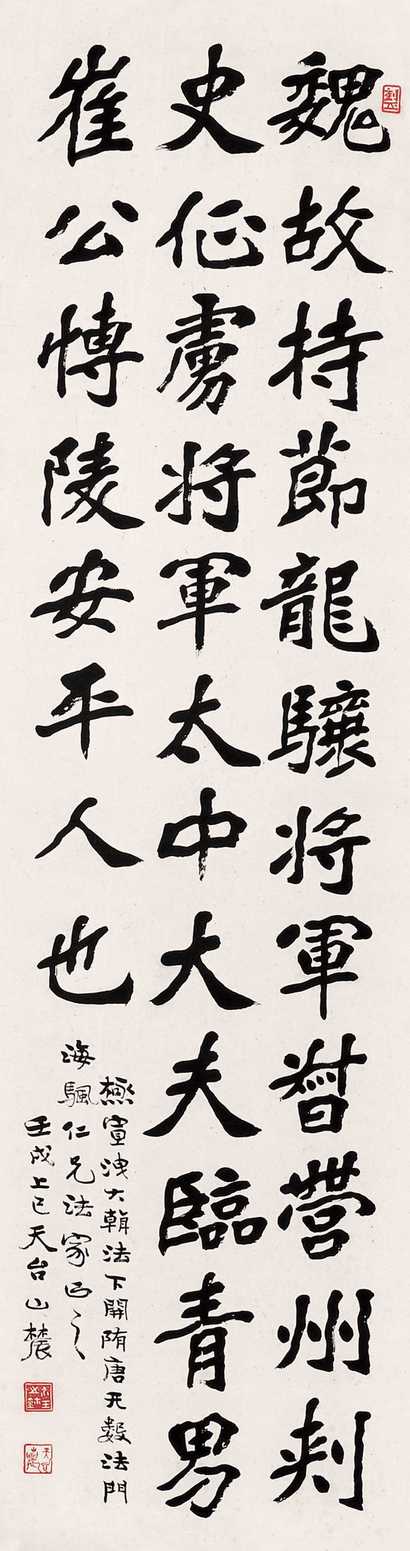 魏故持節龍驤將軍督營州刺
史征虜將軍太中大夫臨青男
崔公博陵安平人也
宣洩大䩗法下開隋唐无數法門
海颿仁兄法家正之
壬戌上巳天台山農